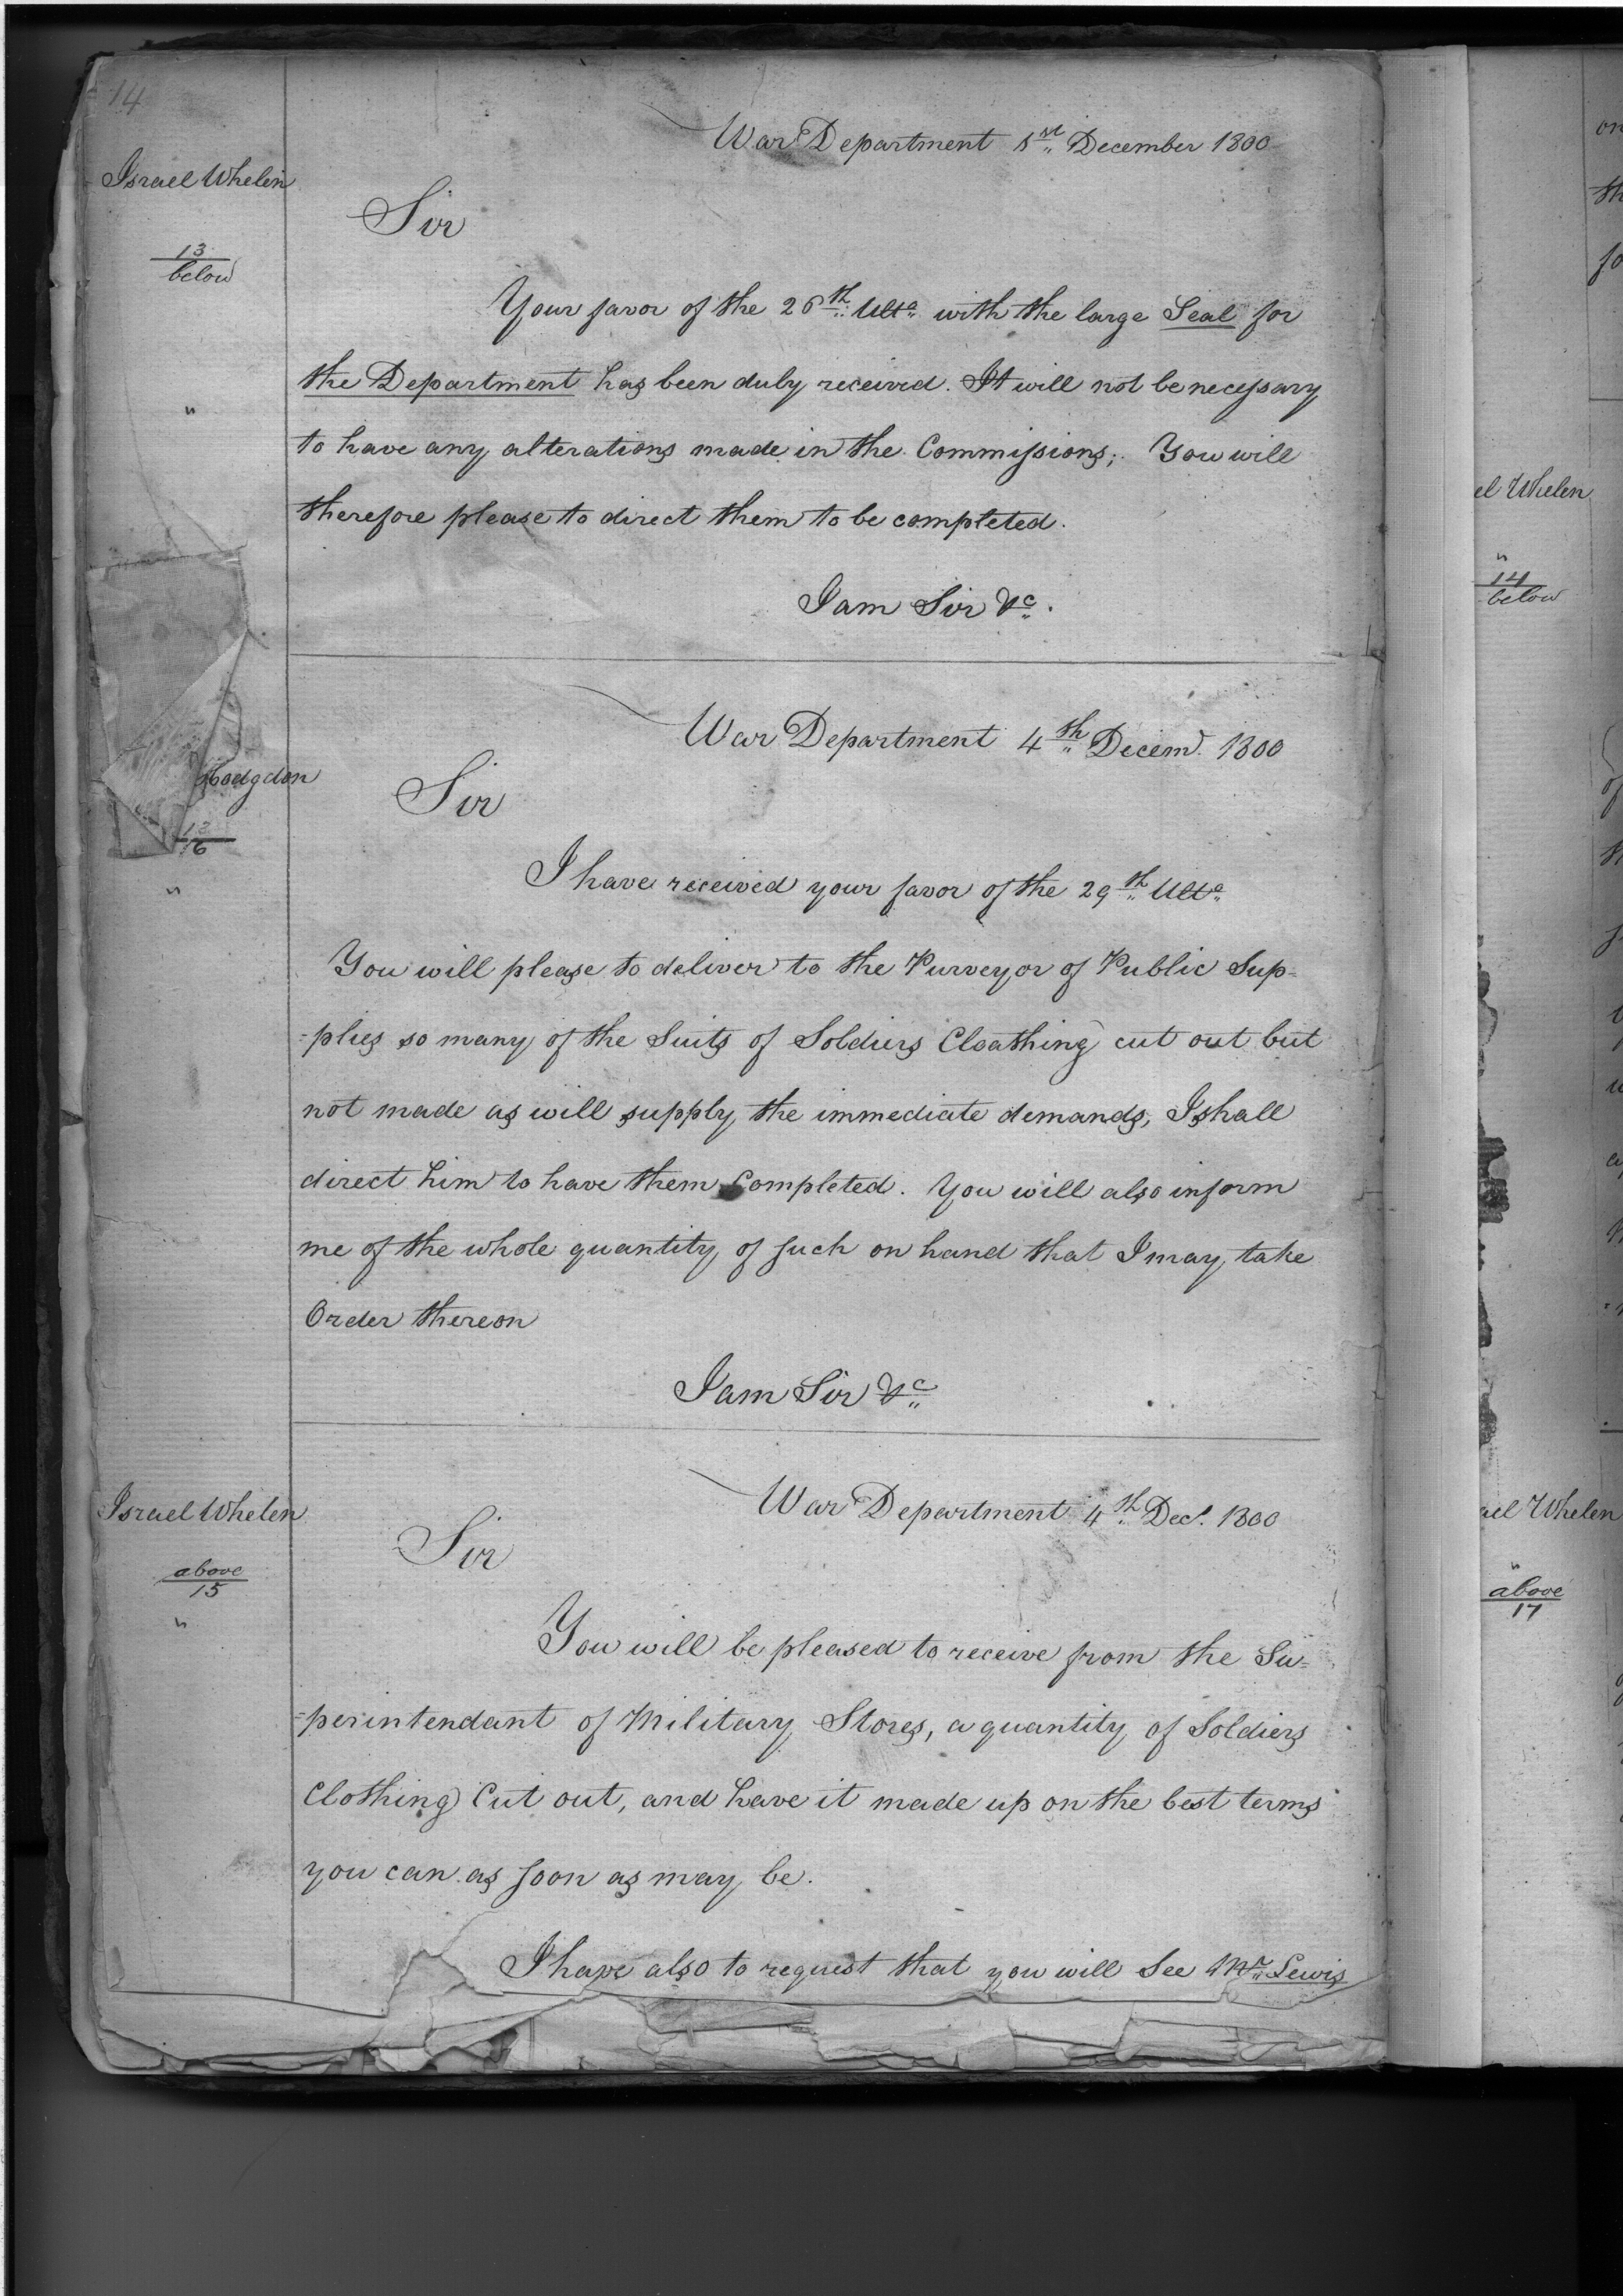 14
War Department 1st December 1800
Israel Whelen
13
below
Sir
Your favor of the 26th Ulto with the large Seal for
the Department has been duly received. It will not be necessary
"
to have any alterations made in the Commissions; You will
therefore please to direct them to be completed.
I am Sir &c.
War Department 4th Decemr 1800
Hodgdon
13
16
"
Sir
I have received your favor of the 29th Ulto
You will please to deliver to the Purveyor of Public Sup-
-plies so many of the Suits of Soldiers Cloathing cut out but
not made as will supply the immediate demands, I shall
direct him to have them Completed. You will also inform
me of the whole quantity of such on hand that I may take
Order thereon
I am Sir &c
War Department 4th Decr. 1800
Israel Whelen
above
15
"
Sir
You will be pleased to receive from the Su-
-perintendant of Military Stores, a quantity of Soldiers
Clothing Cut out, and have it made up on the best terms
you can as soon as may be.
I have also to request that you will See Mr Lewis
el Whelen
"
14
below
ael Whelen
"
above
17